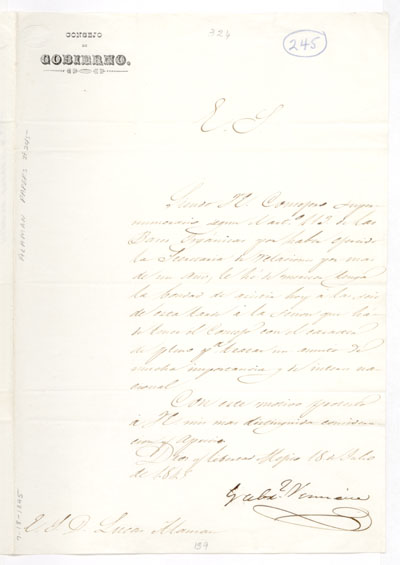 CONSEJO
DE
GOBIERNO.
324
245
E. S.
Siendo V.E. Consejero super-
numerario segun el art.º 113 de las
Bases Orgánicas por haber ejercido
la Secretaria de Relaciones por mas
de un año,
la bondad de asistir hoy á las seis
de esta tarde á la Sesion que ha
de tener el Consejo con el caracter
de pleno pª tratar un asunto de
mucha importancia y de interes na-
cional.
Con este motivo presento
á V.E. mis mas distinguida considera-
cion y aprecio.
Dios y Libertad Mejico 18 de Julio
de 1845
E. S. D. Lucas Alaman
ALAMAN PAPERS
7-18-1845